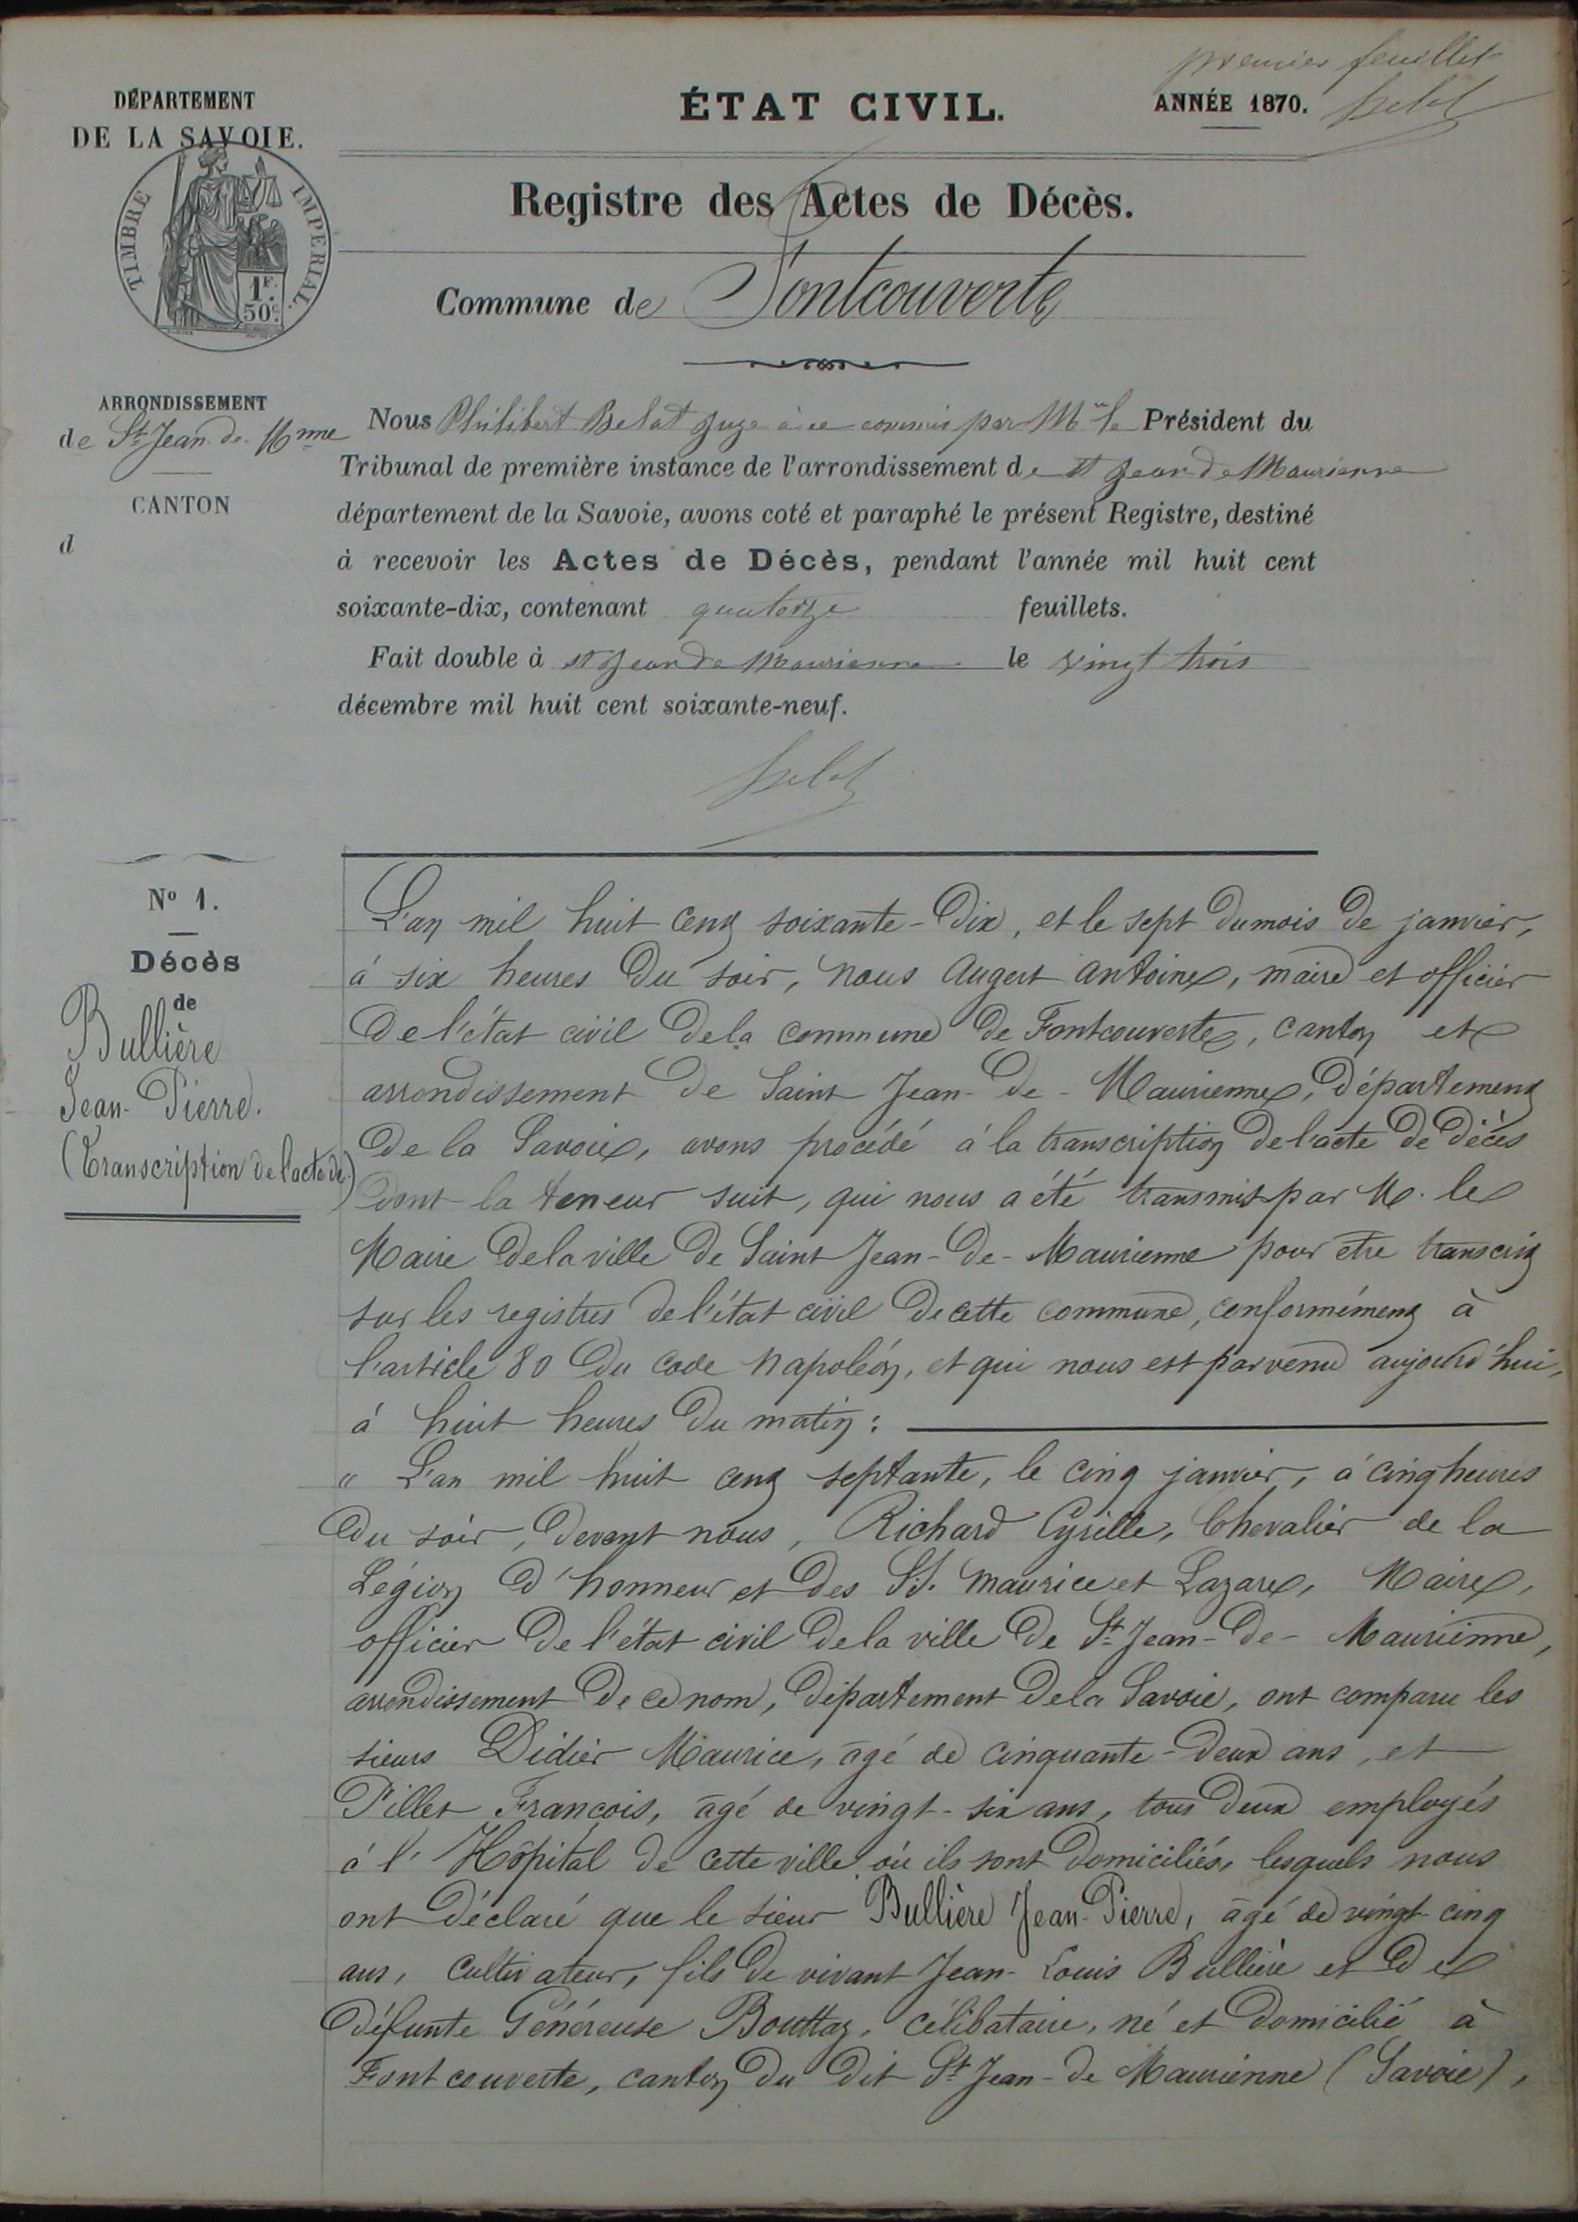 premier feuillet
Belat
DÉPARTEMENT
DE LA SAVOIE.
ÉTAT CIVIL.
ANNÉE 1870.
TIMBRE IMPERIAL.
1F.
50c.
Registre des Actes de Décès.
Commune de Fontcouverte
ARRONDISSEMENT
de St Jean de Mnne
CANTON
d
Nous Philibert Belat Juge à ce commis par Mr le Président du
Tribunal de première instance de l'arrondissement de St Jean de Maurienne
département de la Savoie, avons coté et paraphé le présent Registre, destiné
à recevoir les Actes de Décès, pendant l'année mil huit cent
soixante-dix, contenant quatorze feuillets.
Fait double à St Jean de Maurienne le vingt trois
décembre mil huit cent soixante-neuf.
Belat
No 1.
Décès
de
Bullière
Jean-Pierre.
(Transcription de l'acte de)
L'an mil huit cent soixante-dix, et le sept du mois de janvier,
à six heures du soir, nous Augert Antoine, maire et officier
de l'état civil de la commune de Fontcouverte, canton et
arrondissement de Saint Jean-de-Maurienne, département
de la Savoie, avons procédé à la transcription de l'acte de décès
dont la teneur suit, qui nous a été transmis par M. le
Maire de la ville de Saint Jean-de-Maurienne pour être transcrit
sur les registres de l'état civil de cette commune, conformément à
l'article 80 du Code Napoléon, et qui nous est parvenu aujourd'hui,
à huit heures du matin :
" L'an mil huit cent septante, le cinq janvier, à cinq heures
du soir, devant nous, Richard Cyrille, Chevalier de la
Légion d'honneur et des S.S. Maurice et Lazare, Maire,
officier de l'état civil de la ville de St Jean-de-Maurienne,
arrondissement de ce nom, département de la Savoie, ont comparu les
sieurs Didier Maurice, âgé de cinquante-deux ans, et
Pillet François, âgé de vingt-six ans, tous deux employés
à l'Hôpital de cette ville où ils sont domiciliés, lesquels nous
ont déclaré que le sieur Bullière Jean-Pierre, âgé de vingt cinq
ans, cultivateur, fils de vivant Jean-Louis Bullière et de
défunte Généreuse Bouttaz, célibataire, né et domicilié à
Fontcouverte, canton du dit St Jean-de Maurienne (Savoie),